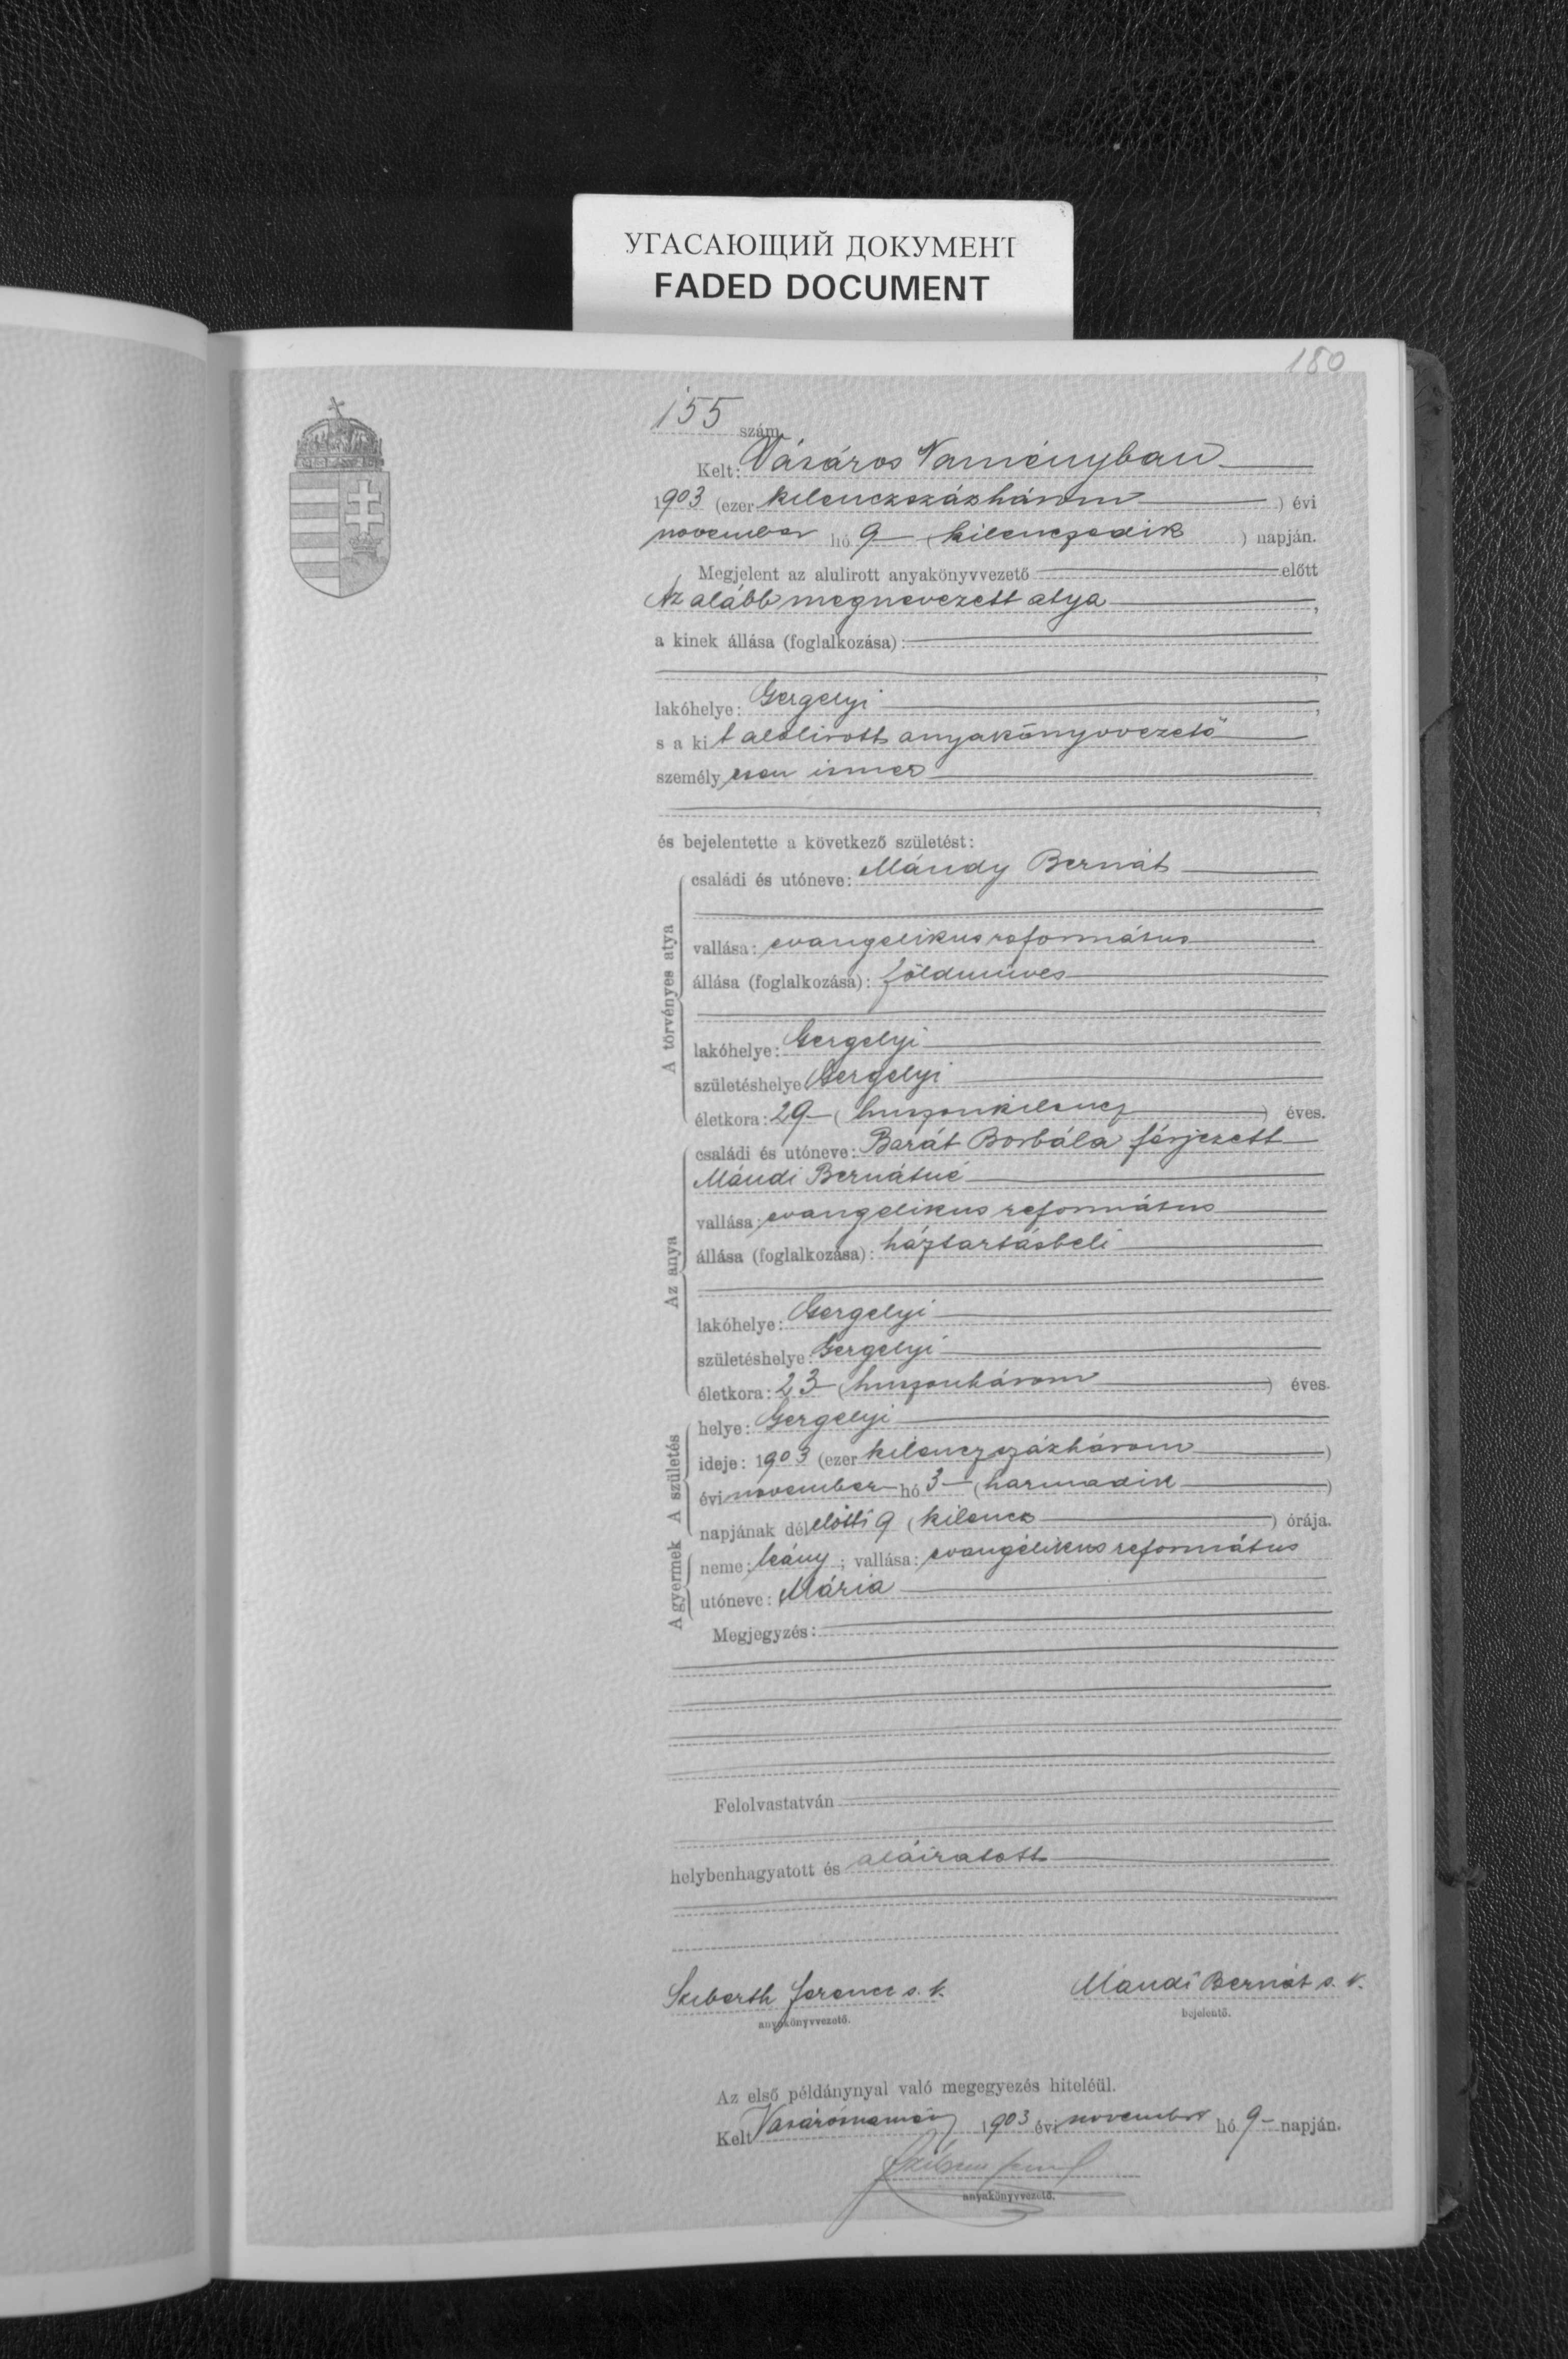 УГАСАЮЩИЙ ДОКУМЕНТ
FADED DOCUMENT
180
155 szám.
Kelt: Vásáros Naményban
1903 (ezer kilenczszázhárom ) évi
november hó 9 ( kilenczedik ) napján.
Megjelent az alulirott anyakönyvvezető előtt
Az alább megnevezett atya ,
a kinek állása (foglalkozása):
,
lakóhelye: Gergelyi ,
s a kit alólirott anyakönyvvezető
személyesen ismer
,
és bejelentette a következő születést:
A törvényes atya
családi és utóneve: Mándy Bernát
vallása: evangelikus református
állása (foglalkozása): földmüves
lakóhelye: Gergelyi
születéshelye: Gergelyi
életkora: 29 ( huszonkilencz ) éves.
Az anya
családi és utóneve: Barát Borbála férjezett
Mándi Bernátné
vallása: evangelikus református
állása (foglalkozása): háztartásbeli
lakóhelye: Gergelyi
születéshelye: Gergelyi
életkora: 23 ( huszonhárom ) éves.
A születés
helye: Gergelyi
ideje: 1903 (ezer kilenczszázhárom )
évi november hó 3 ( harmadik )
napjának délelőtti 9 ( kilencz ) órája.
A gyermek
neme: leány ; vallása: evangélikus református
utóneve: Mária
Megjegyzés:
Felolvastatván
helybenhagyatott és aláiratott
Szeberth Ferencz s. k. Mándi Bernát s. k.
anyakönyvvezető. bejelentő.
Az első példánynyal való megegyezés hiteléül.
Kelt Vásárosnamény 1903 évi november hó 9 napján.
anyakönyvvezető.